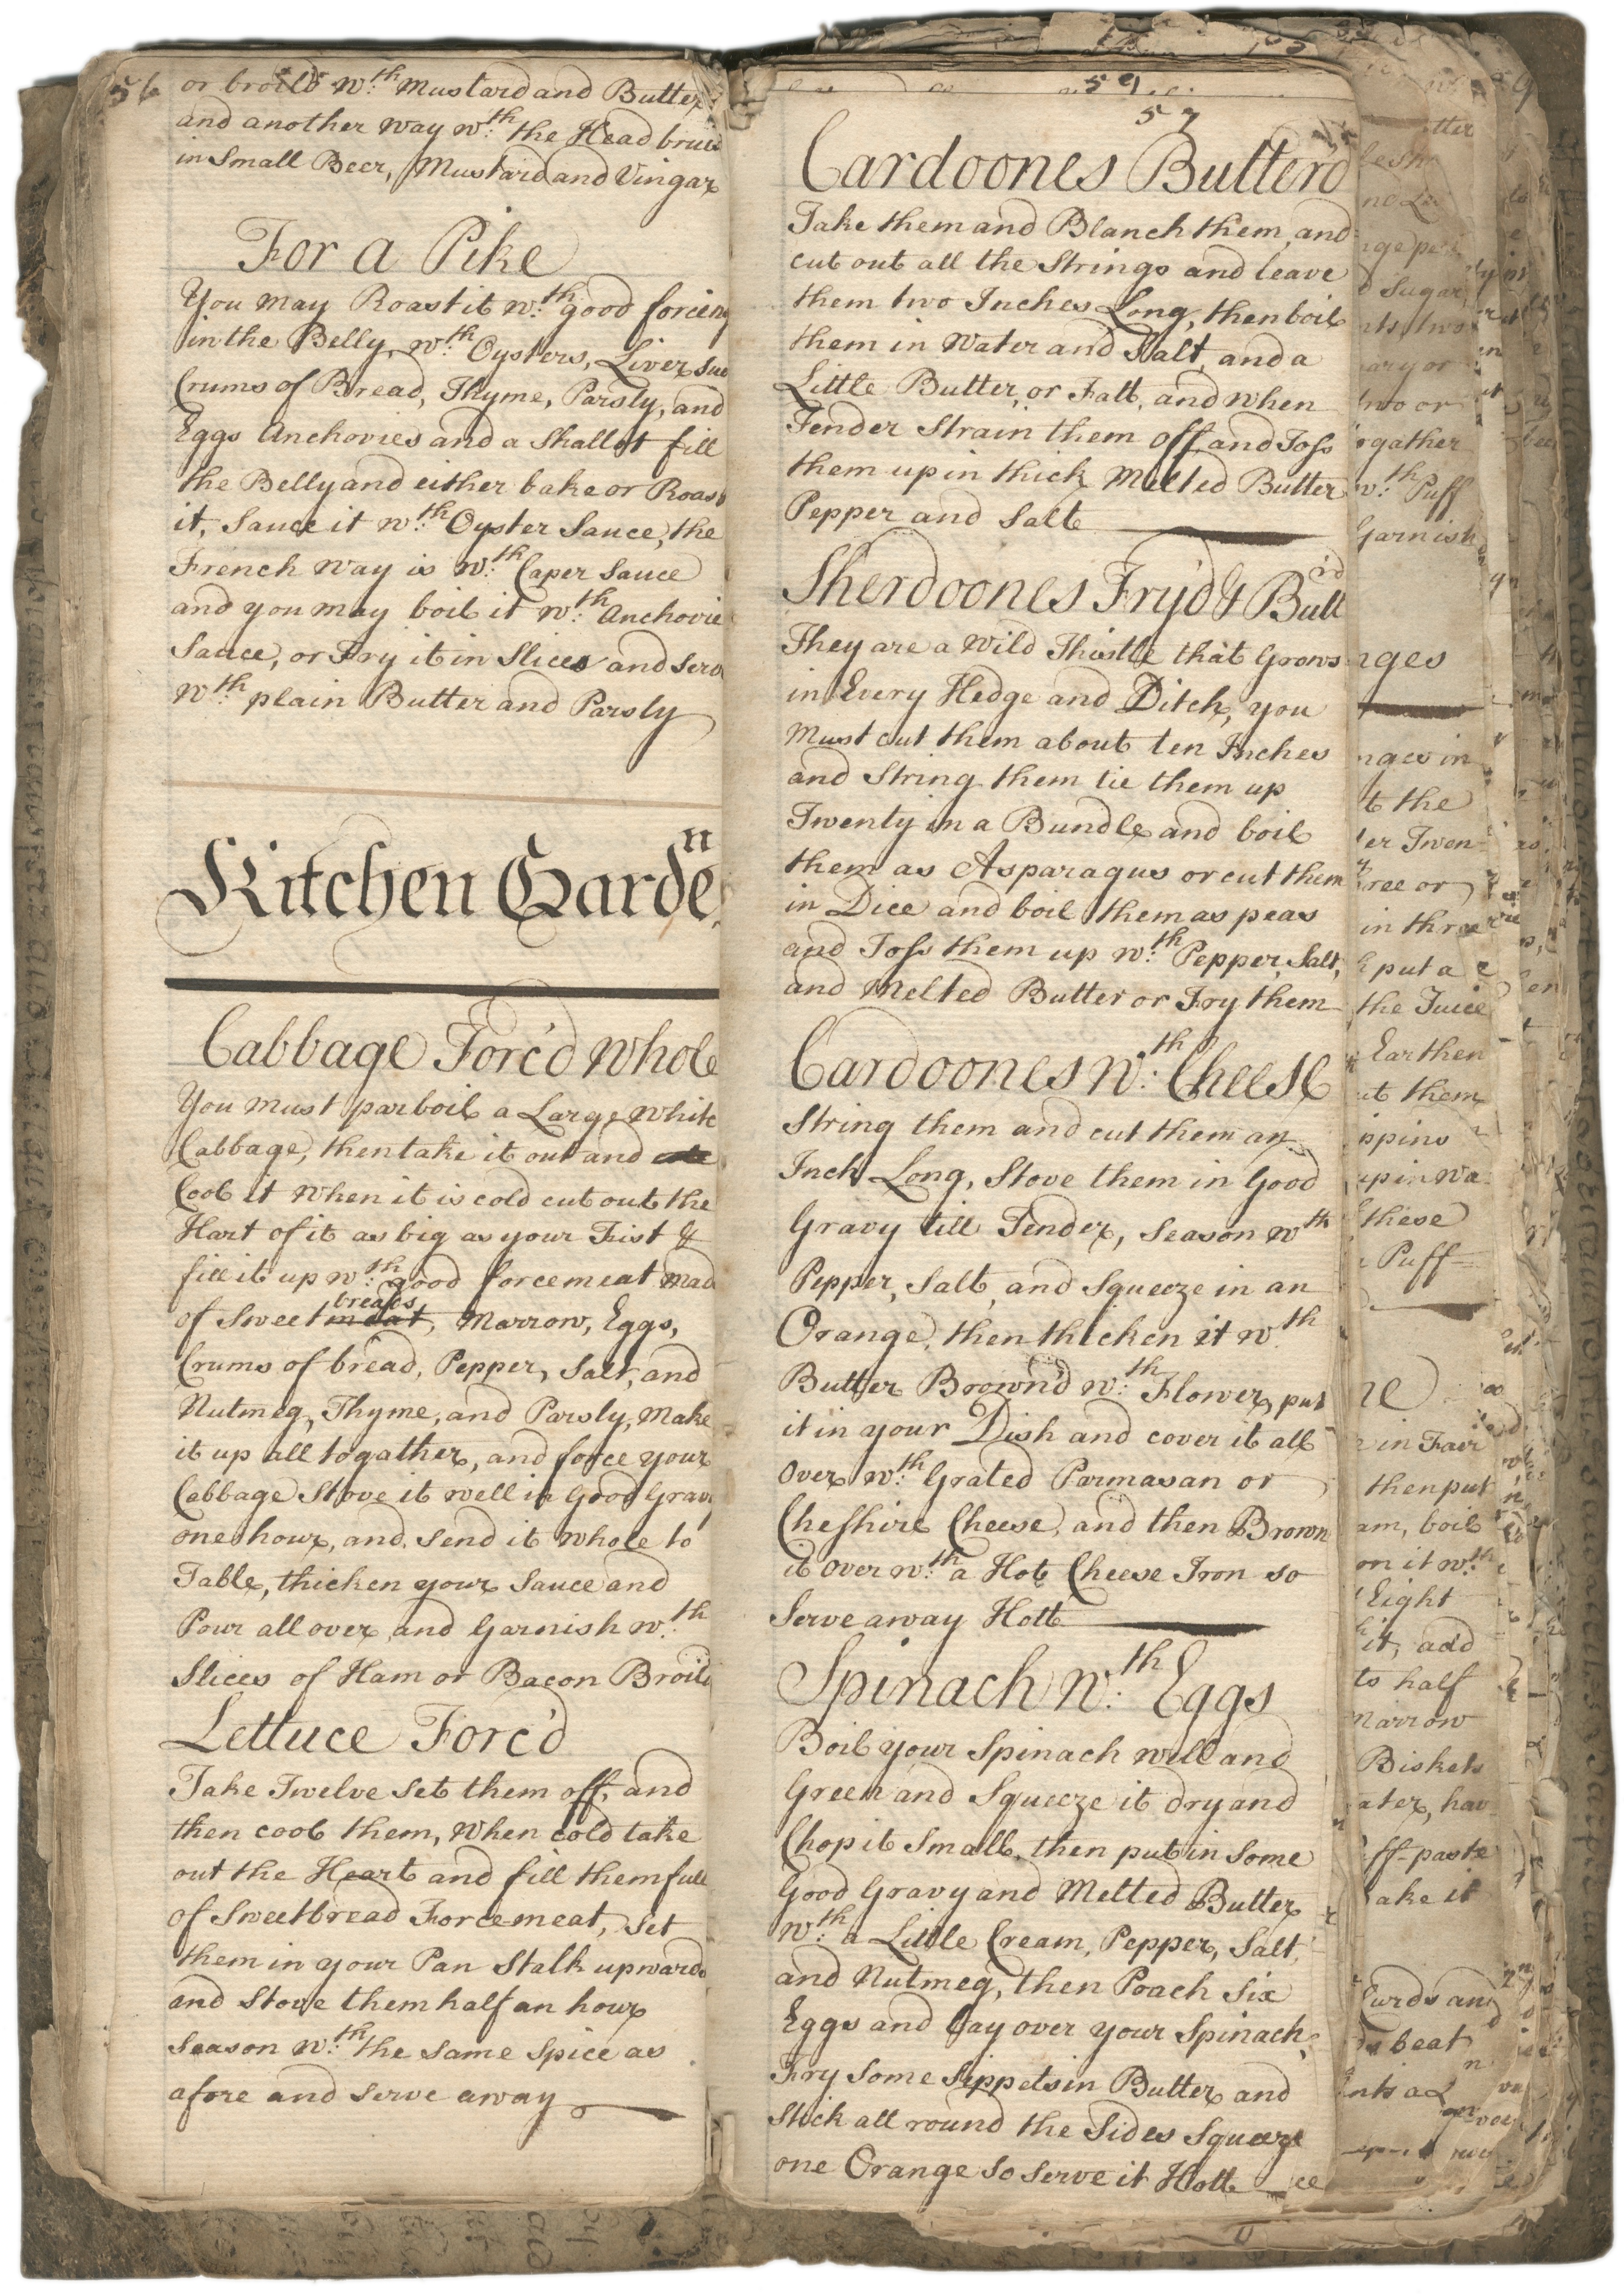 56
or broild w:th Mustard and Butter
and another way w:th the Head bruis
in Small Beer, Mustard and Vingar
For a Pike
You may Roast it w:th good forceing
in the Belly, w:th Oysters, Liver sue
Crums of Bread, Thyme, Parsly, and
Eggs Anchovies and a Shallot fill
the Belly and either bake or Roast
it, Sauce it w:th Oyster Sauce, the
French way is w:th Caper Sauce
and you may boil it w:th Anchovie
Sauce, or Fry it in Slices and Serve
w:th plain Butter and Parsly
Kitchen Garden
Cabbage Forc'd whole
You must parboil a Large white
Cabbage, then take it out and
Cool it when it is cold cut out the
Hart of it as big as your Fist &
fill it up w:th good forcemeat mad
of Sweetmeat breads, Marrow, Eggs,
Crums of bread, Pepper, Salt, and
Nutmeg, Thyme, and Parsly, Make
it up all togather, and force your
Cabbage Stove it well in good Gravy
one hour, and send it whole to
Table, thicken your Sauce and
Pour all over and Garnish w:th
Slices of Ham or Bacon Broild
Lettuce Forc'd
Take Twelve set them off, and
then cool them, when cold take
out the Heart and fill them full
of Sweetbread Forcemeat, Set
them in your Pan Stalk upwards
and Stove them half an hour
Season w:th the same Spice as
afore and serve away
59
57
Cardoones Butterd
Take them and Blanch them, and
cut out all the Strings and leave
them two Inches Long, then boil
them in Water and Salt, and a
Little Butter, or Fatt, and when
Tender Strain them off and Toss
them up in thick Melted Butter
Pepper and Salt
Sherdoones Fry'd & Butt'd
They are a Wild Thistle that Grows
in Every Hedge and Ditch, you
Must cut them about ten Inches
and String them tie them up
Twenty in a Bundle and boil
them as Asparagus or cut them
in Dice and boil them as peas
and Toss them up w:th Pepper, Salt,
and Melted Butter or Fry them
Cardoones w:th Cheese
String them and cut them an
Inch Long, Stove them in Good
Gravy till Tender, Season wth
Pepper, Salt, and Squeeze in an
Orange, then thicken it w:th
Butter Brown'd w:th Flower, put
it in your Dish and cover it all
Over w:th Grated Parmasan or
Cheshire Cheese, and then Brown
it over w:th a Hot Cheese Iron so
Serve away Hott
Spinach w:th Eggs
Boil your Spinach well and
Green and Squeeze it dry and
Chop it Small, then put in some
Good Gravy and Melted Butter
w:th a Little Cream, Pepper, Salt,
and Nutmeg, then Poach Six
Eggs and Lay over your Spinach,
Fry some Sippets in Butter and
Stick all round the Sides Squeeze
one Orange so serve it Hott
Sugar
ogather
w:th Puff
Garnish
nges
nges in
t the
er Twen-
ree or
in three
put a
the Juice
Earthen
ut them
up in wa-
these
Puff
in Fair
then put
am, boil
on it w:th
Eight
it, add
to half
Marrow
Biskets
ater, hav-
ff-paste
ake it
Curds and
beat